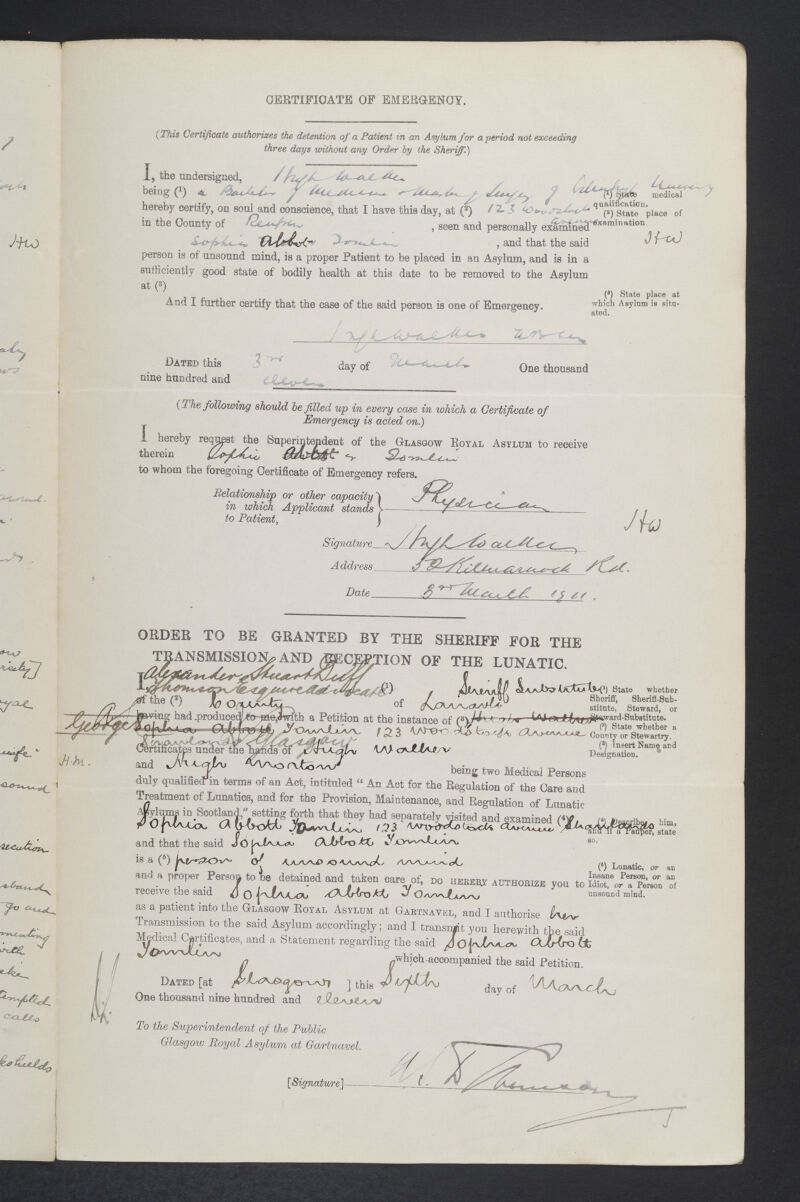 CERTIFICATE OF EMERGENCY.
(This Certificate authorizes the detention of a Patient in an Asylum for a period not exceeding
three days without any Order by the Sheriff.)
I, the undersigned, Hugh Walker
being (¹) a Bachelor of Medicine & Master of Surgery of University
(¹) State medical
qualification.
hereby certify, on soul and conscience, that I have this day, at (²) 123 Woodstock
Avenue
(²) State place of
examination.
in the County of Renfrew, seen and personally examined
HW
Sophia Abbott Tomlin, and that the said
person is of unsound mind, is a proper Patient to be placed in an Asylum, and is in a
sufficiently good state of bodily health at this date to be removed to the Asylum
at (³)
(³) State place at
which Asylum is situ-
ated.
And I further certify that the case of the said person is one of Emergency.
Hugh Walker
DATED this 3rd day of March One thousand
nine hundred and eleven
(The following should be filled up in every case in which a Certificate of
Emergency is acted on.)
I hereby request the Superintendent of the GLASGOW ROYAL ASYLUM to receive
therein Sophia Abbott or Tomlin
to whom the foregoing Certificate of Emergency refers.
Relationship or other capacity
in which Applicant stands
to Patient,
Physician
HW
Signature Hugh Walker
Address 52 Kilmarnock Rd.
Date 3rd March 1911.
ORDER TO BE GRANTED BY THE SHERIFF FOR THE
TRANSMISSION AND RECEPTION OF THE LUNATIC.
I, Alexander Stuart Duff
Thomson Esquire Advocate (¹) Sheriff Substitute
(¹) State whether
Sheriff, Sheriff-Sub-
stitute, Steward, or
Steward-Substitute.
of the (²) County of Lanark
(²) State whether a
County or Stewartry.
having had produced to me, with a Petition at the instance of (³) Hugh Walker
George
(³) Insert Name and
Designation.
Sophia Abbott Tomlin 123 Woodstock Avenue
Shawlands Glasgow
H.M.
Certificates under the hands of Hugh Walker
and Hugh Morton being two Medical Persons
duly qualified in terms of an Act, intituled "An Act for the Regulation of the Care and
Treatment of Lunatics, and for the Provision, Maintenance, and Regulation of Lunatic
Asylums in Scotland," setting forth that they had separately visited and examined (⁴)
(⁴) Describe him,
and if a Pauper, state
so.
Sophia Abbott Tomlin 123 Woodstock Avenue Shawlands
and that the said Sophia Abbott Tomlin
is a (⁵) person of unsound mind
(⁵) Lunatic, or an
Insane Person, or an
Idiot, or a Person of
unsound mind.
and a proper Person to be detained and taken care of, DO HEREBY AUTHORIZE you to
receive the said Sophia Abbott Tomlin
as a patient into the GLASGOW ROYAL ASYLUM AT GARTNAVEL, and I authorise her
Transmission to the said Asylum accordingly; and I transmit you herewith the said
Medical Certificates, and a Statement regarding the said Sophia Abbott
Tomlin which accompanied the said Petition.
DATED [at Glasgow ] this Sixth day of March
One thousand nine hundred and eleven
To the Superintendent of the Public
Glasgow Royal Asylum at Gartnavel.
[Signature] A. S. D. Thomson